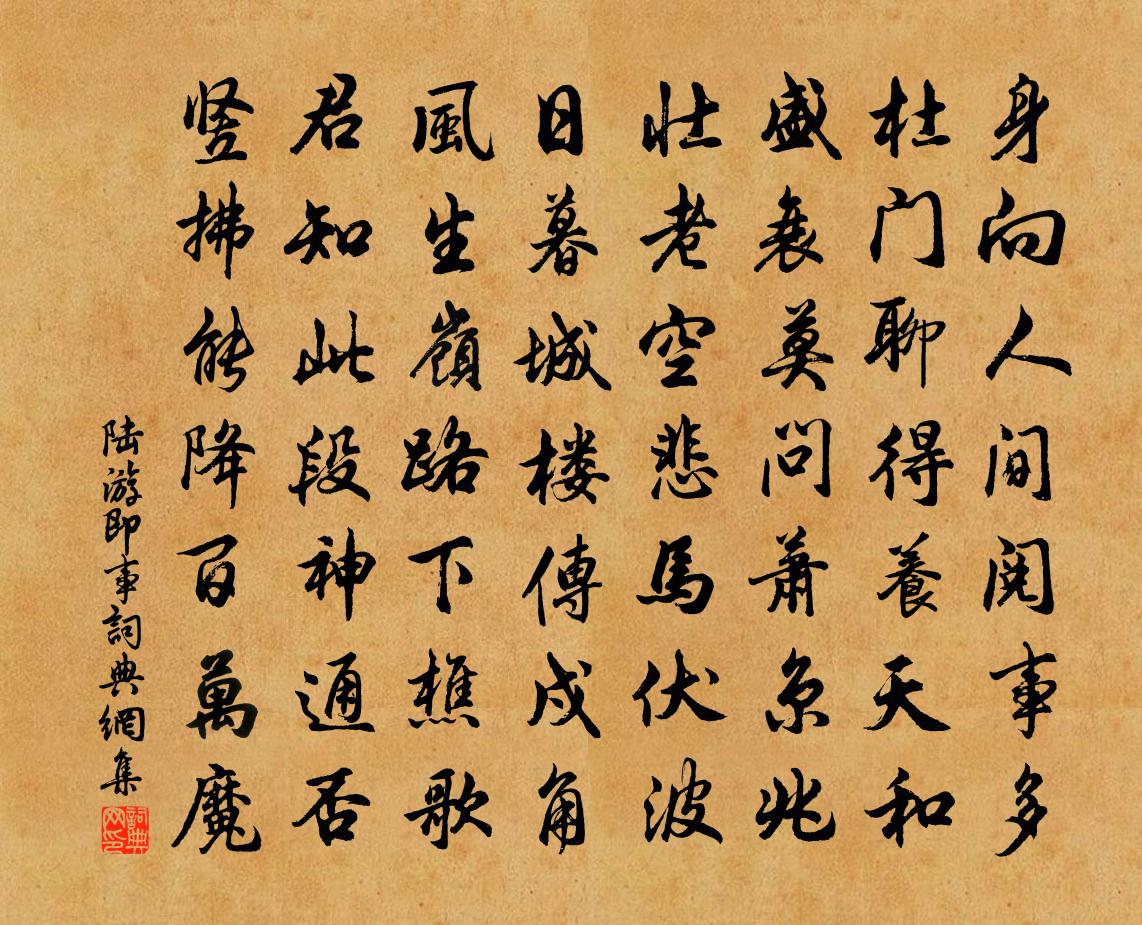 身向人间阅事多
杜门聊得養天和
盛衰莫问蕭京兆
壮老空悲馬伏波
日暮城楼傳戍角
風生嶺路下樵歌
君知此段神通否
竖拂能降百萬魔
陆游即事詞典網集
詞典网印